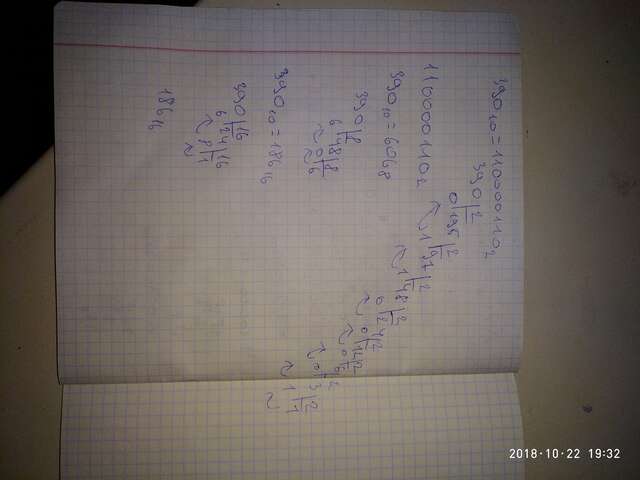 390₁₀ = 110000110₂
390 | 2
0 195 | 2
1 97 | 2
1 48 | 2
0 24 | 2
0 12 | 2
0 6 | 2
0 3 | 2
1 1
110000110₂
390₁₀ = 606₈
390 | 8
6 48 | 8
0 6
390₁₀ = 186₁₆
390 | 16
6 24 | 16
8 1
186₁₆
2018·10·22 19:32